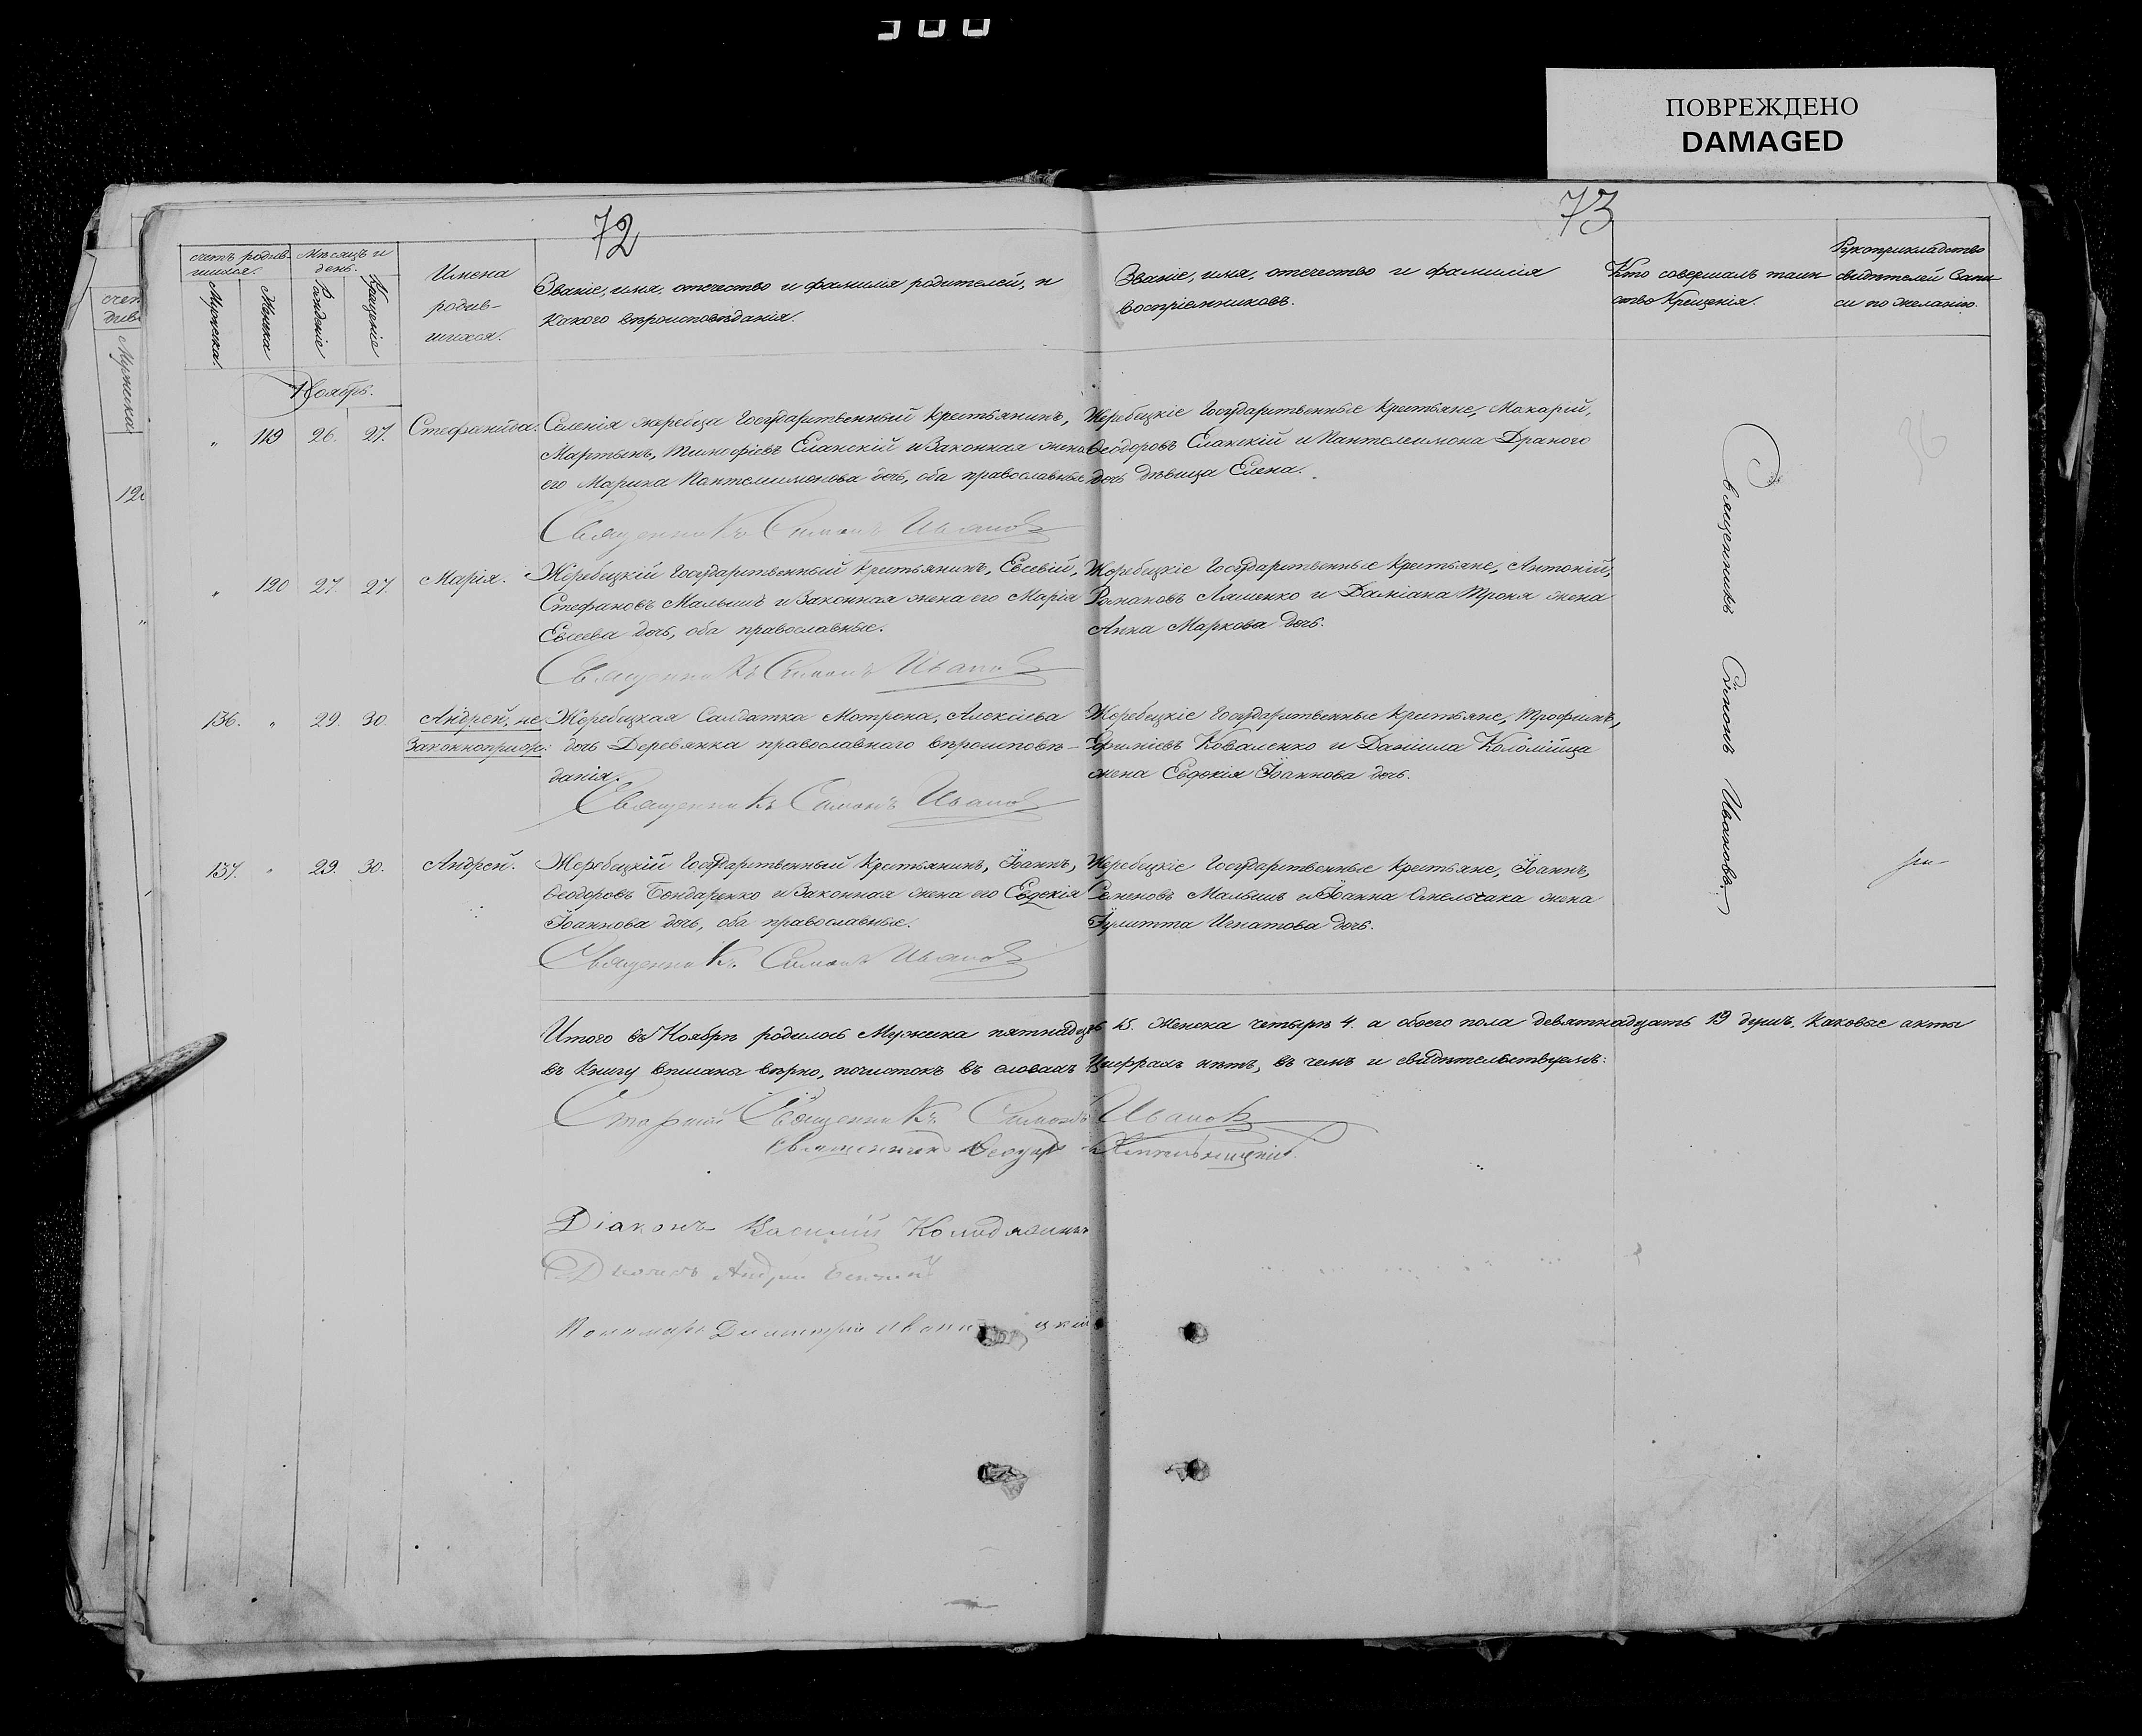 300
ПОВРЕЖДЕНО
DAMAGED
72
73
счетъ родив-
шихся.
Мужеска
Женска
Мѣсяцъ и
день.
Рожденіе
Крещеніе
Имена
родив-
шихся.
Званіе, имя, отечество и фамилія родителей, и
какого вѣроисповѣданія.
Званіе, имя, отечество и фамилія
воспріемниковъ.
Кто совершалъ таин-
ство Крещенія.
Рукоприкладство
свидѣтелей запи-
си по желанію.
Мужеска
Ноябрь.
" 119 26. 27. Стефанида.
Селенія Жеребца Государственный крестьянинъ,
Мартынъ, Тимофіевъ Еланскій и законная жена
его Марина Пантелимонова дочь, оба православные
Жеребецкіе Государственные крестьяне, Макарій,
Ѳеодоровъ Еланскій и Пантелеимона Драного
дочь дѣвица Елена.
Священникъ Симонъ Ивановъ
" 120 27. 27. Марія.
Жеребецкій Государственный крестьянинъ, Евсевій,
Стефановъ Малышъ и законная жена его Марія
Евсеева дочь, оба православные.
Жеребецкіе Государственные крестьяне, Антоній,
Романовъ Ляшенко и Даміана Троня жена
Анна Маркова дочь.
Священникъ Симонъ Ивановъ
136. " 29. 30. Андрей, не
законноприж:
Жеребецкая Салдатка Мотрона, Алексіева
дочь Деревянка православнаго вѣроисповѣ-
данія.
Жеребецкіе Государственные крестьяне, Трофимъ,
Ефиміевъ Коваленко и Даніила Коломійца
жена Евдокія Іоаннова дочь.
Священникъ Симонъ Ивановъ
137. " 29. 30. Андрей.
Жеребецкій Государственный крестьянинъ, Іоаннъ,
Ѳеодоровъ Бондаренко и законная жена его Евдокія
Іоаннова дочь, оба православные.
Жеребецкіе Государственные крестьяне, Іоаннъ,
Семеновъ Малышъ и Іоанна Омельчака жена
Іулитта Игнатова дочь.
Священникъ Симонъ Ивановъ
Священникъ Симонъ Ивановъ.
Итого въ Ноябрѣ родилось Мужеска пятнадцать 15. Женска четыре 4. а обоего пола девятнадцать 19 душъ. Каковые акты
въ книгу вписаны вѣрно, почистокъ въ словахъ и цыфрахъ нѣтъ, въ чемъ и свидѣтельствуемъ:
Старшій Священникъ Симонъ Ивановъ
Священникъ Ѳеодоръ
Діаконъ Василій
Дьячекъ Андрей
Пономарь Димитрій